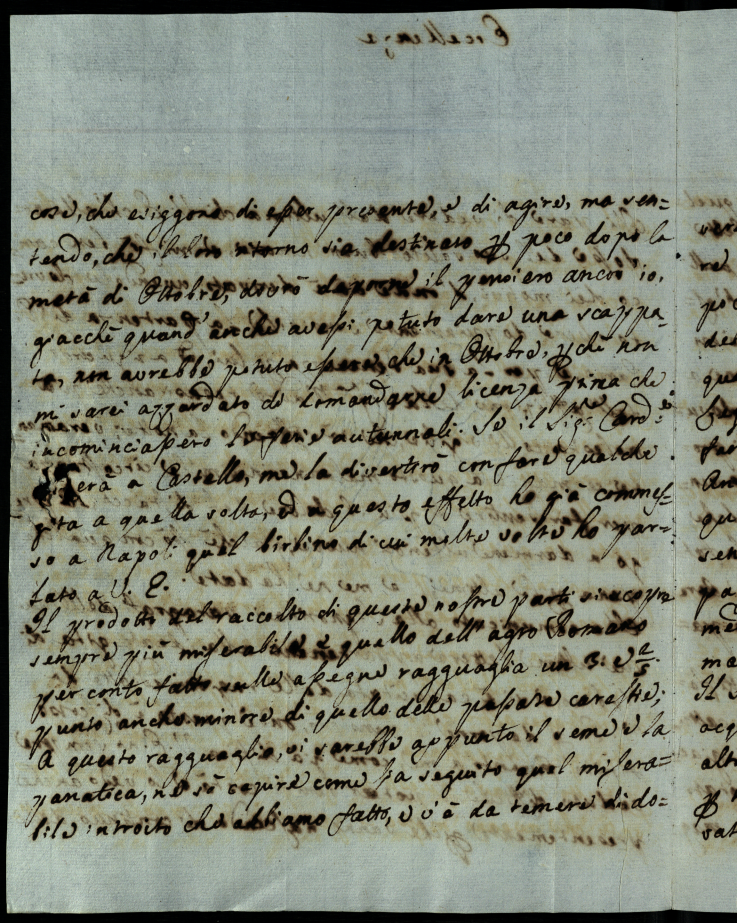 cose, che esiggono di esser presente, e di agire, ma sen=
tendo, che il loro ritorno sia destinato p poco dopo la
metà di Ottobre, dovrò deporre il pensiero ancor io,
giacchè quand' anche avessi potuto dare una scappa-
ta, non avrebbe potuto essere, che in Ottobre, pchè non
mi sarei azzardato di domandarne licenza prima che
incominciassero le ferie autunnali. Se il Sig.r Card.e
erà a Castello, me la divertirò con fare qualche
gita a quella volta, ed a questo effetto ho già commes=
so a Napoli quel birbino di cui molte volte ho par=
lato a V. E.
Il prodotto del raccolto di queste nostre parti si scopre
sempre più miserabile e quello dell' agro Romano
per conto fatto sulle assegne ragguaglia un 3. e 2/5.
punto anche minore di quello delle passate carestie;
A questo ragguaglio, vi sarebbe appunto il seme e la
panatica, nè sò capire come sia seguito quel misera=
bile introito che abbiamo fatto, e v'è da temere di do=